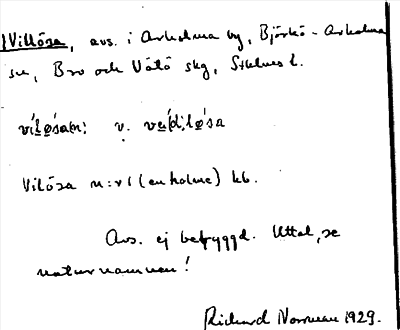 Villösa, avs. i Arholma by, Björkö-Arholma
sn, Bro och Vätö skg, Sthlms l.
v. 
Vilösa n:r 1 (en holme) kb.
Avs. ej bebyggd. Uttal, se
naturnamnen!
Richard Norrman 1929.